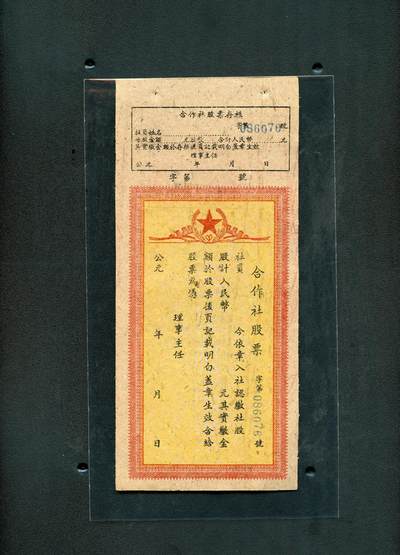 合作社股票存根
字第086076號
社員姓名
認繳金額 元 合計人民幣 元
其實繳金額於存根後頁記載明白蓋章生效
理事主任
公元 年 月 日
字第 號
合作社股票
字第086076號
社員 今依章入社認繳社股
股計人民幣 元其實繳金
額於股票後頁記載明白蓋章生效合給
股票為憑
理事主任
公元 年 月 日